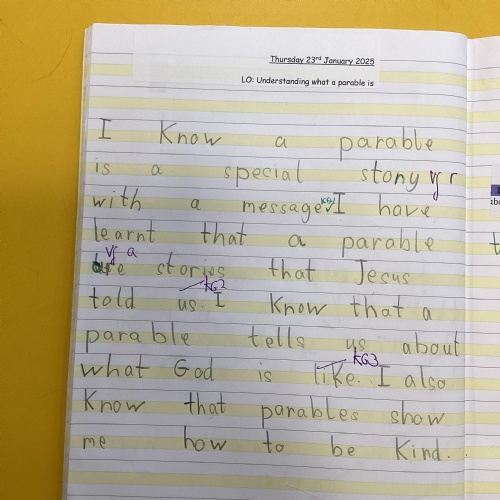 Thursday 23rd January 2025
LO: Understanding what a parable is
I Know a parable
is a special stony vf r
with a message. KG1 I have
learnt that a parable
vf a
are stories that Jesus
KG2
told us. I Know that a
parable tells us about
KG3
what God is like. I also
Know that parables show
me how to be Kind.